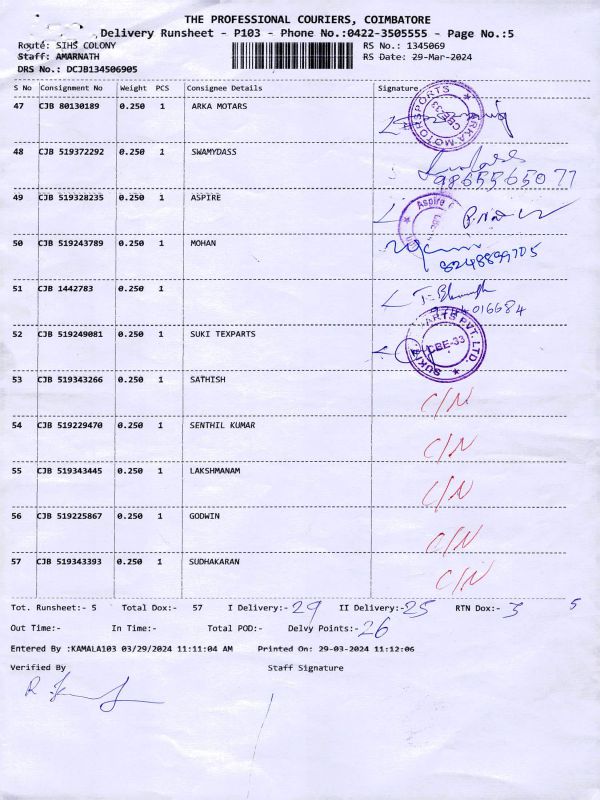 THE PROFESSIONAL COURIERS, COIMBATORE
Delivery Runsheet - P103 - Phone No.:0422-3505555 - Page No.:5
Route: SIHS COLONY RS No.: 1345069
Staff: AMARNATH RS Date: 29-Mar-2024
DRS No.: DCJB134506905
S No Consignment No Weight PCS Consignee Details Signature
47 CJB 80130189 0.250 1 ARKA MOTARS
ARKA MOTORSPORTS CBE-33
48 CJB 519372292 0.250 1 SWAMYDASS
9865565077
49 CJB 519328235 0.250 1 ASPIRE
Aspire
50 CJB 519243789 0.250 1 MOHAN
8248899705
51 CJB 1442783 0.250 1
016684
52 CJB 519249081 0.250 1 SUKI TEXPARTS
SUKI PARTS PVT. LTD. CBE-33
53 CJB 519343266 0.250 1 SATHISH C/N
54 CJB 519229470 0.250 1 SENTHIL KUMAR C/N
55 CJB 519343445 0.250 1 LAKSHMANAM C/N
56 CJB 519225867 0.250 1 GODWIN C/N
57 CJB 519343393 0.250 1 SUDHAKARAN C/N
Tot. Runsheet:- 5 Total Dox:- 57 I Delivery:- 29 II Delivery:- 25 RTN Dox:- 3 5
Out Time:- In Time:- Total POD:- Delvy Points:- 26
Entered By :KAMALA103 03/29/2024 11:11:04 AM Printed On: 29-03-2024 11:12:06
Verified By Staff Signature